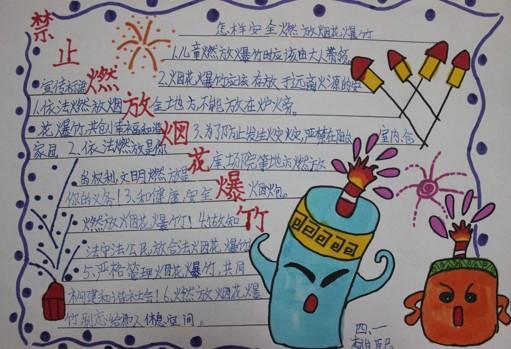 禁止燃放烟花爆竹
怎样安全燃放烟花爆竹
1.儿童燃放爆竹时应该由大人带领
2.烟花爆竹应该存放于远离火源的安
全地方,不能放在炉火旁。
3.为了防止发生火灾,严禁在阳台、室内、仓
库、场院等地方燃放
烟花。
宣传标语
1.依法燃放烟
花爆竹,共创幸福和谐
家园 2.依法燃放是你
的权利,文明燃放是
你的义务!3.和健康,安全
燃放火烟花爆竹!4.
法守法公民放合法火烟花爆竹
5.严格管理烟花爆竹,共同
构建和谐社会!6.燃放烟花爆
竹别忘给他人休息空间。
四、一